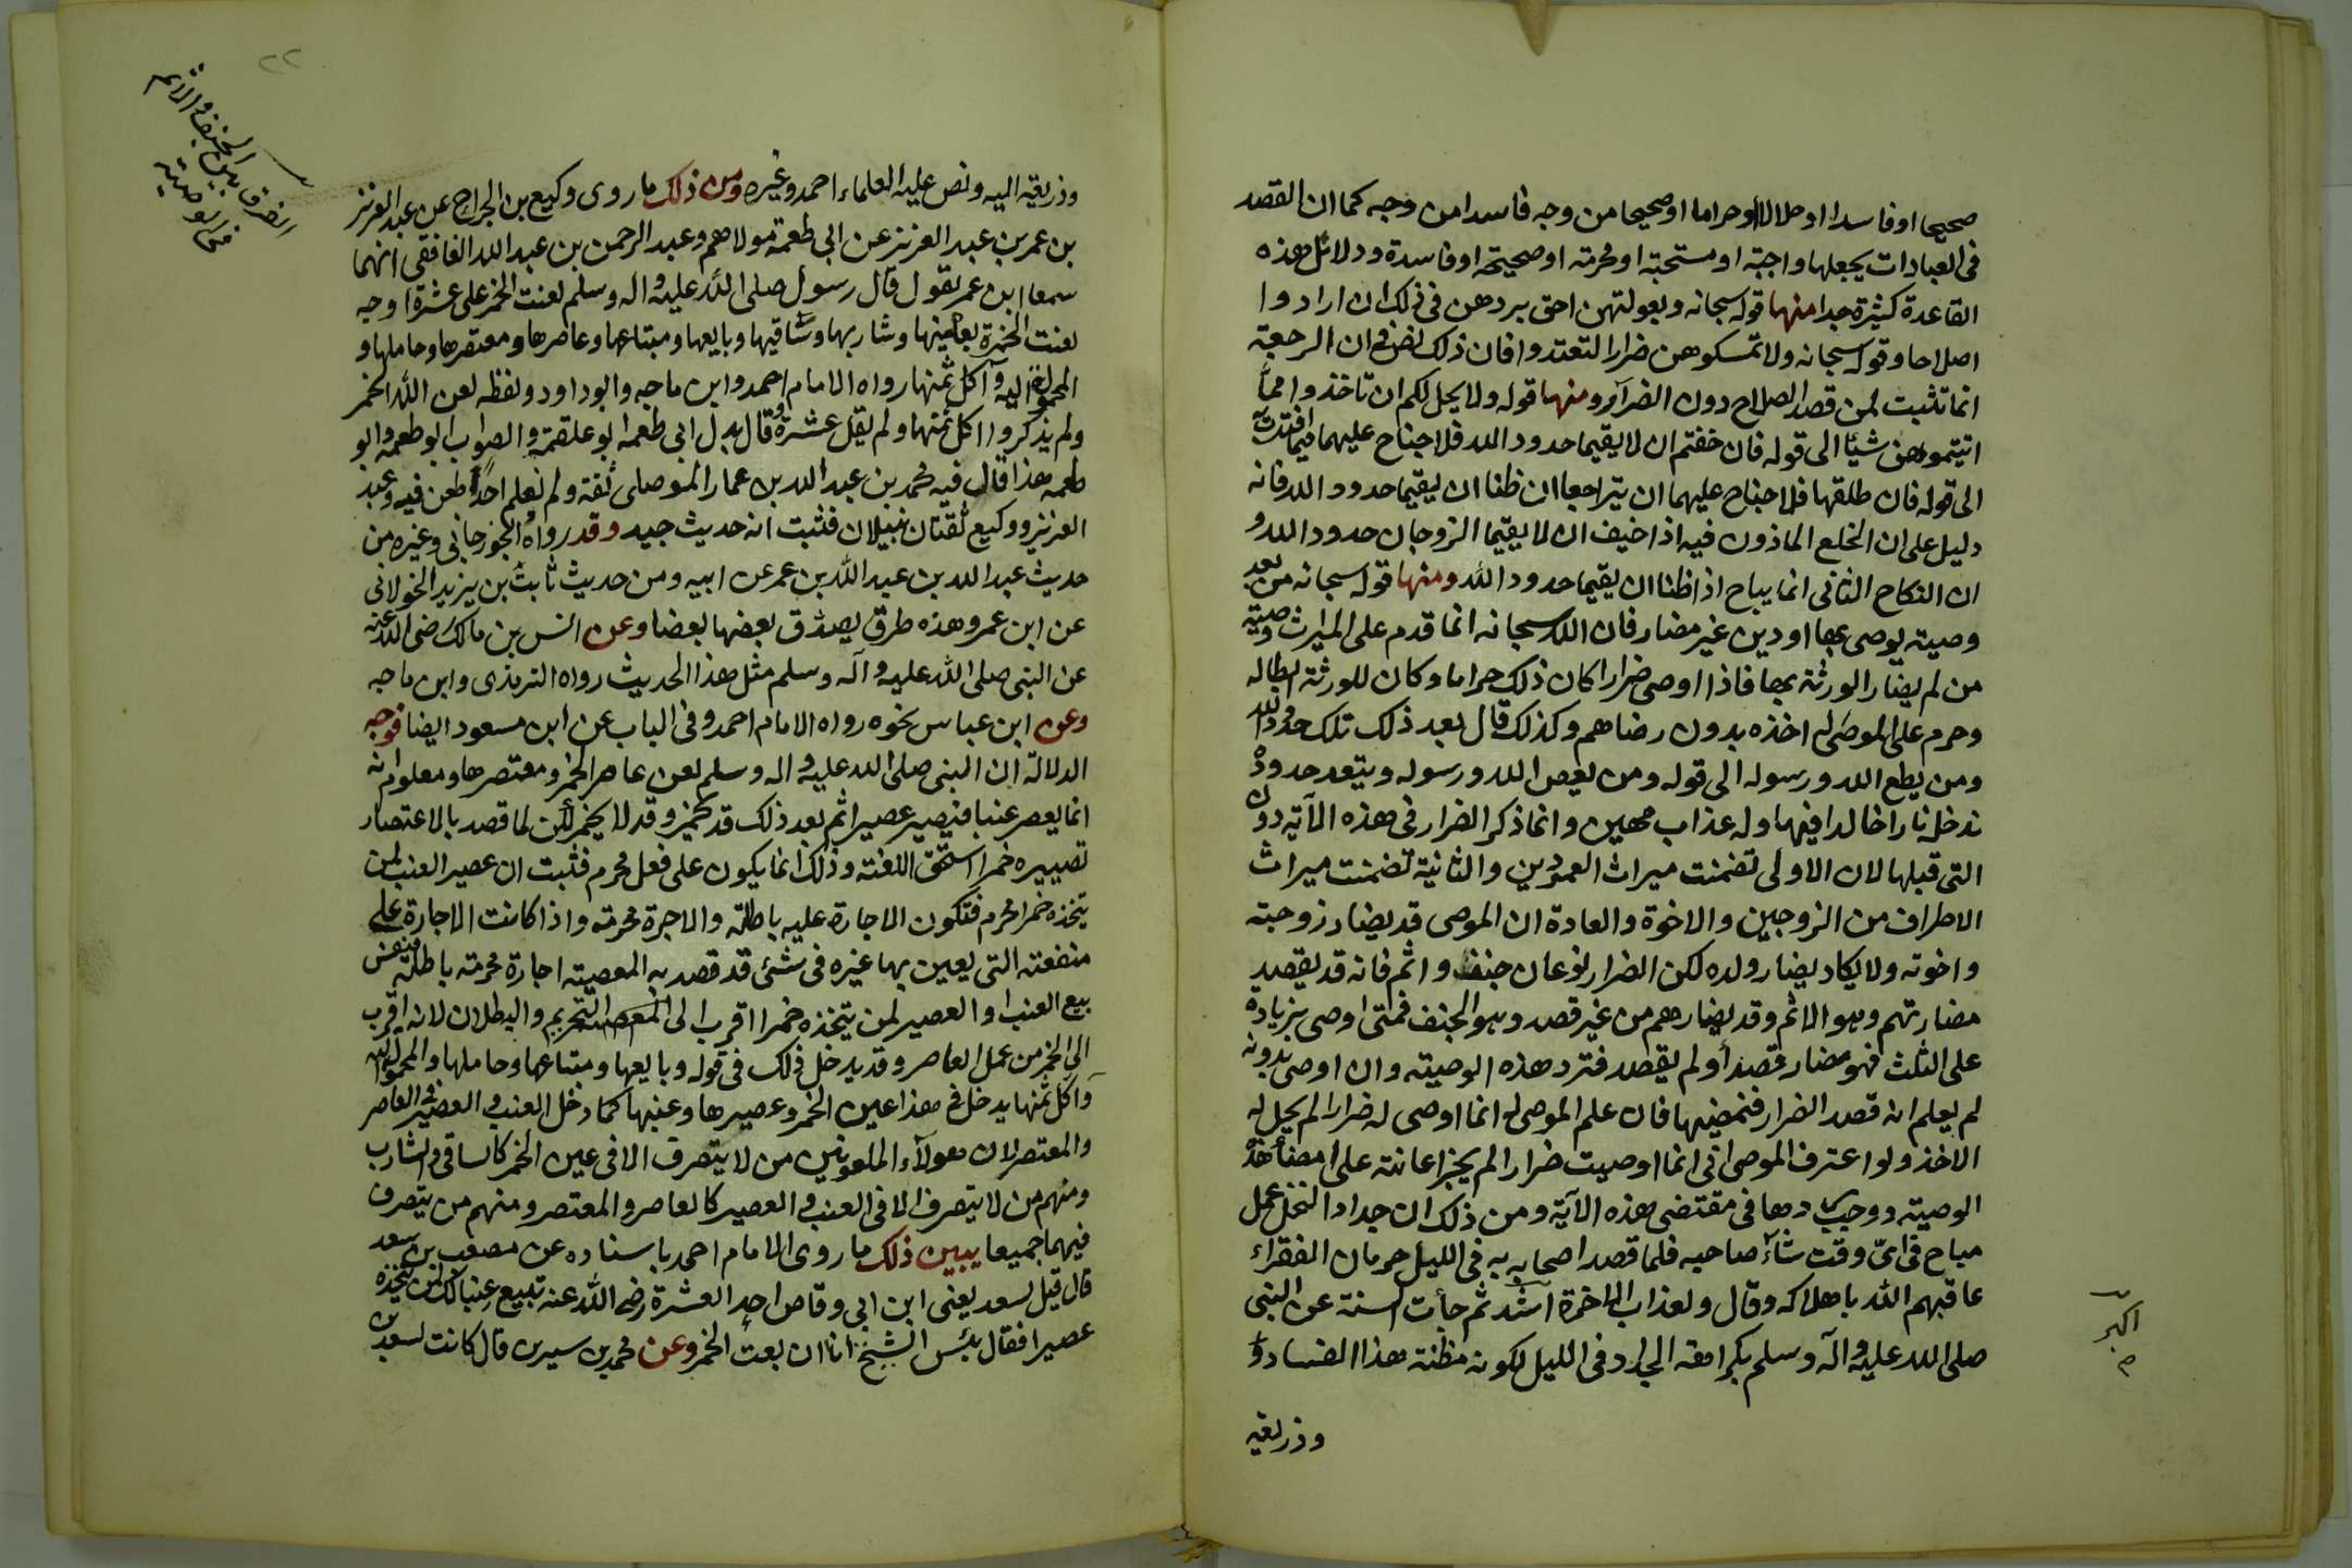 صحيحا او فاسدا او حلالا او حراما او صحيحا من وجه فاسدا من وجه كما ان القصد
فى العبادات يجعلها واجبة او مستحبة او محرمة او صحيحة او فاسدة ودلائل هذه
القاعدة كثيرة جدا منها قوله سبحانه وبعولتهن احق بردهن فى ذلك ان ارادوا
اصلاحا وقوله سبحانه ولا تمسكوهن ضرارا لتعتدوا فان ذلك نص فى ان الرجعة
انما تثبت لمن قصد الصلاح دون الضرآر ومنها قوله ولا يحل لكم ان تاخذوا مما
اتيتموهن شيئا الى قوله فان خفتم ان لا يقيما حدود الله فلا جناح عليهما فيما افتدت به
الى قوله فان طلقها فلا جناح عليهما ان يتراجعا ان ظنا ان يقيما حدود الله فانه
دليل على ان الخلع الماذون فيه اذا خيف ان لا يقيما الزوجان حدود الله و
ان النكاح الثانى انما يباح اذا ظنا ان يقيما حدود الله ومنها قوله سبحانه من بعد
وصية يوصى بها او دين غير مضار فان الله سبحانه انما قدم على الميراث وصية
من لم يضار الورثة بها فاذا اوصى ضرارا كان ذلك حراما وكان للورثة ابطاله
وحرم على الموصى له اخذه بدون رضاهم وكذلك قال بعد ذلك تلك حدود الله
ومن يطع الله ورسوله الى قوله ومن يعص الله ورسوله ويتعد حدوده
ندخله نارا خالدا فيها وله عذاب مهين وانما ذكر الضرار فى هذه الآية دون
التى قبلها لان الاولى تضمنت ميراث العمودين والثانية تضمنت ميراث
الاطراف من الزوجين والاخوة والعادة ان الموصى قد يضار زوجته
واخوته ولا يكاد يضار ولده لكن الضرار نوعان جنف واثم فانه قد يقصد
مضارتهم وهو الاثم وقد يضارهم من غير قصد وهو الجنف فمتى اوصى بزيادة
على الثلث فهو مضار قصد أو لم يقصد فترد هذه الوصية وان اوصى بدونه
لم يعلم انه قصد الضرار فنمضيها فان علم الموصى له انما اوصى له ضرارا لم يحل له
الاخذ ولو اعترف الموصى انى انما اوصيت ضرارا لم يجز اعانته على امضاء هذه
الوصية ووجب ردها فى مقتضى هذه الآية ومن ذلك ان جداد النخل عمل
مباح فى اىّ وقت شآء صاحبه فلما قصد اصحابه به فى الليل حرمان الفقراء
عاقبهم الله باهلاكه وقال ولعذاب الاخرة اشد ثم جأت السنة عن النبى
صلى الله عليه وآله وسلم بكراهة الجداد فى الليل لكونه مظنة هذا الفساد و
وذريعة
اكبر
م
٢٢
الضرار بين الجنف والاثم
فى الوصية
وذريعة اليه ونص عليه العلماء احمد وغيره ومن ذلك ما روى وكيع بن الجراح عن عبد العزيز
بن عمر بن عبد العزيز عن ابى طعمة مولاهم وعبد الرحمن بن عبد الله الغافقى انهما
سمعا ابن عمر يقول قال رسول صلى الله عليه واله وسلم لعنت الخمر على عشرة اوجه
لعنت الخمرة بعينها وشاربها وساقيها وبايعها ومبتاعها وعاصرها ومعتصرها وحاملها و
المحمولة اليه وآكل ثمنها رواه الامام احمد وابن ماجه وابو داود ولفظه لعن الله الخمر
ولم يذكروا اكل ثمنها ولم يقل عشرة وقال بدل ابى طعمه ابو علقمة والصواب ابو طعمه وابو
طعمه هذا قال فيه محمد بن عبد الله بن عمار الموصلى ثقة ولم نعلم احدًا طعن فيه وعبد
العزيز ووكيع ثقتان نبيلان فثبت انه حديث جيد وقد رواه الجوزجانى وغيره من
حديث عبد الله بن عبد الله بن عمر عن ابيه ومن حديث ثابت بن يزيد الخولانى
عن ابن عمر وهذه طرق يصدق بعضها بعضا وعن انس بن مالك رضى الله عنه
عن النبى صلى الله عليه وآله وسلم مثل هذا الحديث رواه الترمذى وابن ماجه
وعن ابن عباس نحوه رواه الامام احمد وفى الباب عن ابن مسعود ايضا فوجه
الدلالة ان النبى صلى الله عليه واله وسلم لعن عاصر الخمر ومعتصرها ومعلوم انه
انما يعصر عنبا فيصير عصيرا ثم بعد ذلك قد يخمر وقد لا يخمر لكن لما قصد بالاعتصار
تصييره خمرا استحق اللعنة وذلك انما يكون على فعل محرم فثبت ان عصير العنب لمن
يتخذه خمرا محرم فتكون الاجارة عليه باطلة والاجرة محرمة واذا كانت الاجارة على
منفعته التى يعين بها غيره فى شئ قد قصد به المعصية اجارة محرمة باطلة فنفس
بيع العنب او العصير لمن يتخذه خمرا اقرب الى التحريم والبطلان لانه اقرب
الى الخمر من عمل العاصر وقد يدخل ذلك فى قوله وبايعها ومبتاعها وحاملها والمحمولة اليه
وآكل ثمنها يدخل فى هذا عين الخمر وعصيرها وعنبها كما دخل العنب والعصير فى العاصر
والمعتصر لان هولآء الملعونين من لا يتصرف الا فى عين الخمر كالساقى والشارب
ومنهم من لا يتصرف الا فى العنب والعصير كالعاصر والمعتصر ومنهم من يتصرف
فيهما جميعا يبين ذلك ما روى الامام احمد باسناده عن مصعب بن سعد
قال قيل لسعد يعنى ابن ابى وقاص احد العشرة رضى الله عنه تبيع عنبا لك لمن يتخذه
عصيرا فقال بئس الشيخ انا ان بعت الخمر وعن محمد بن سيرين قال كانت لسعد بن